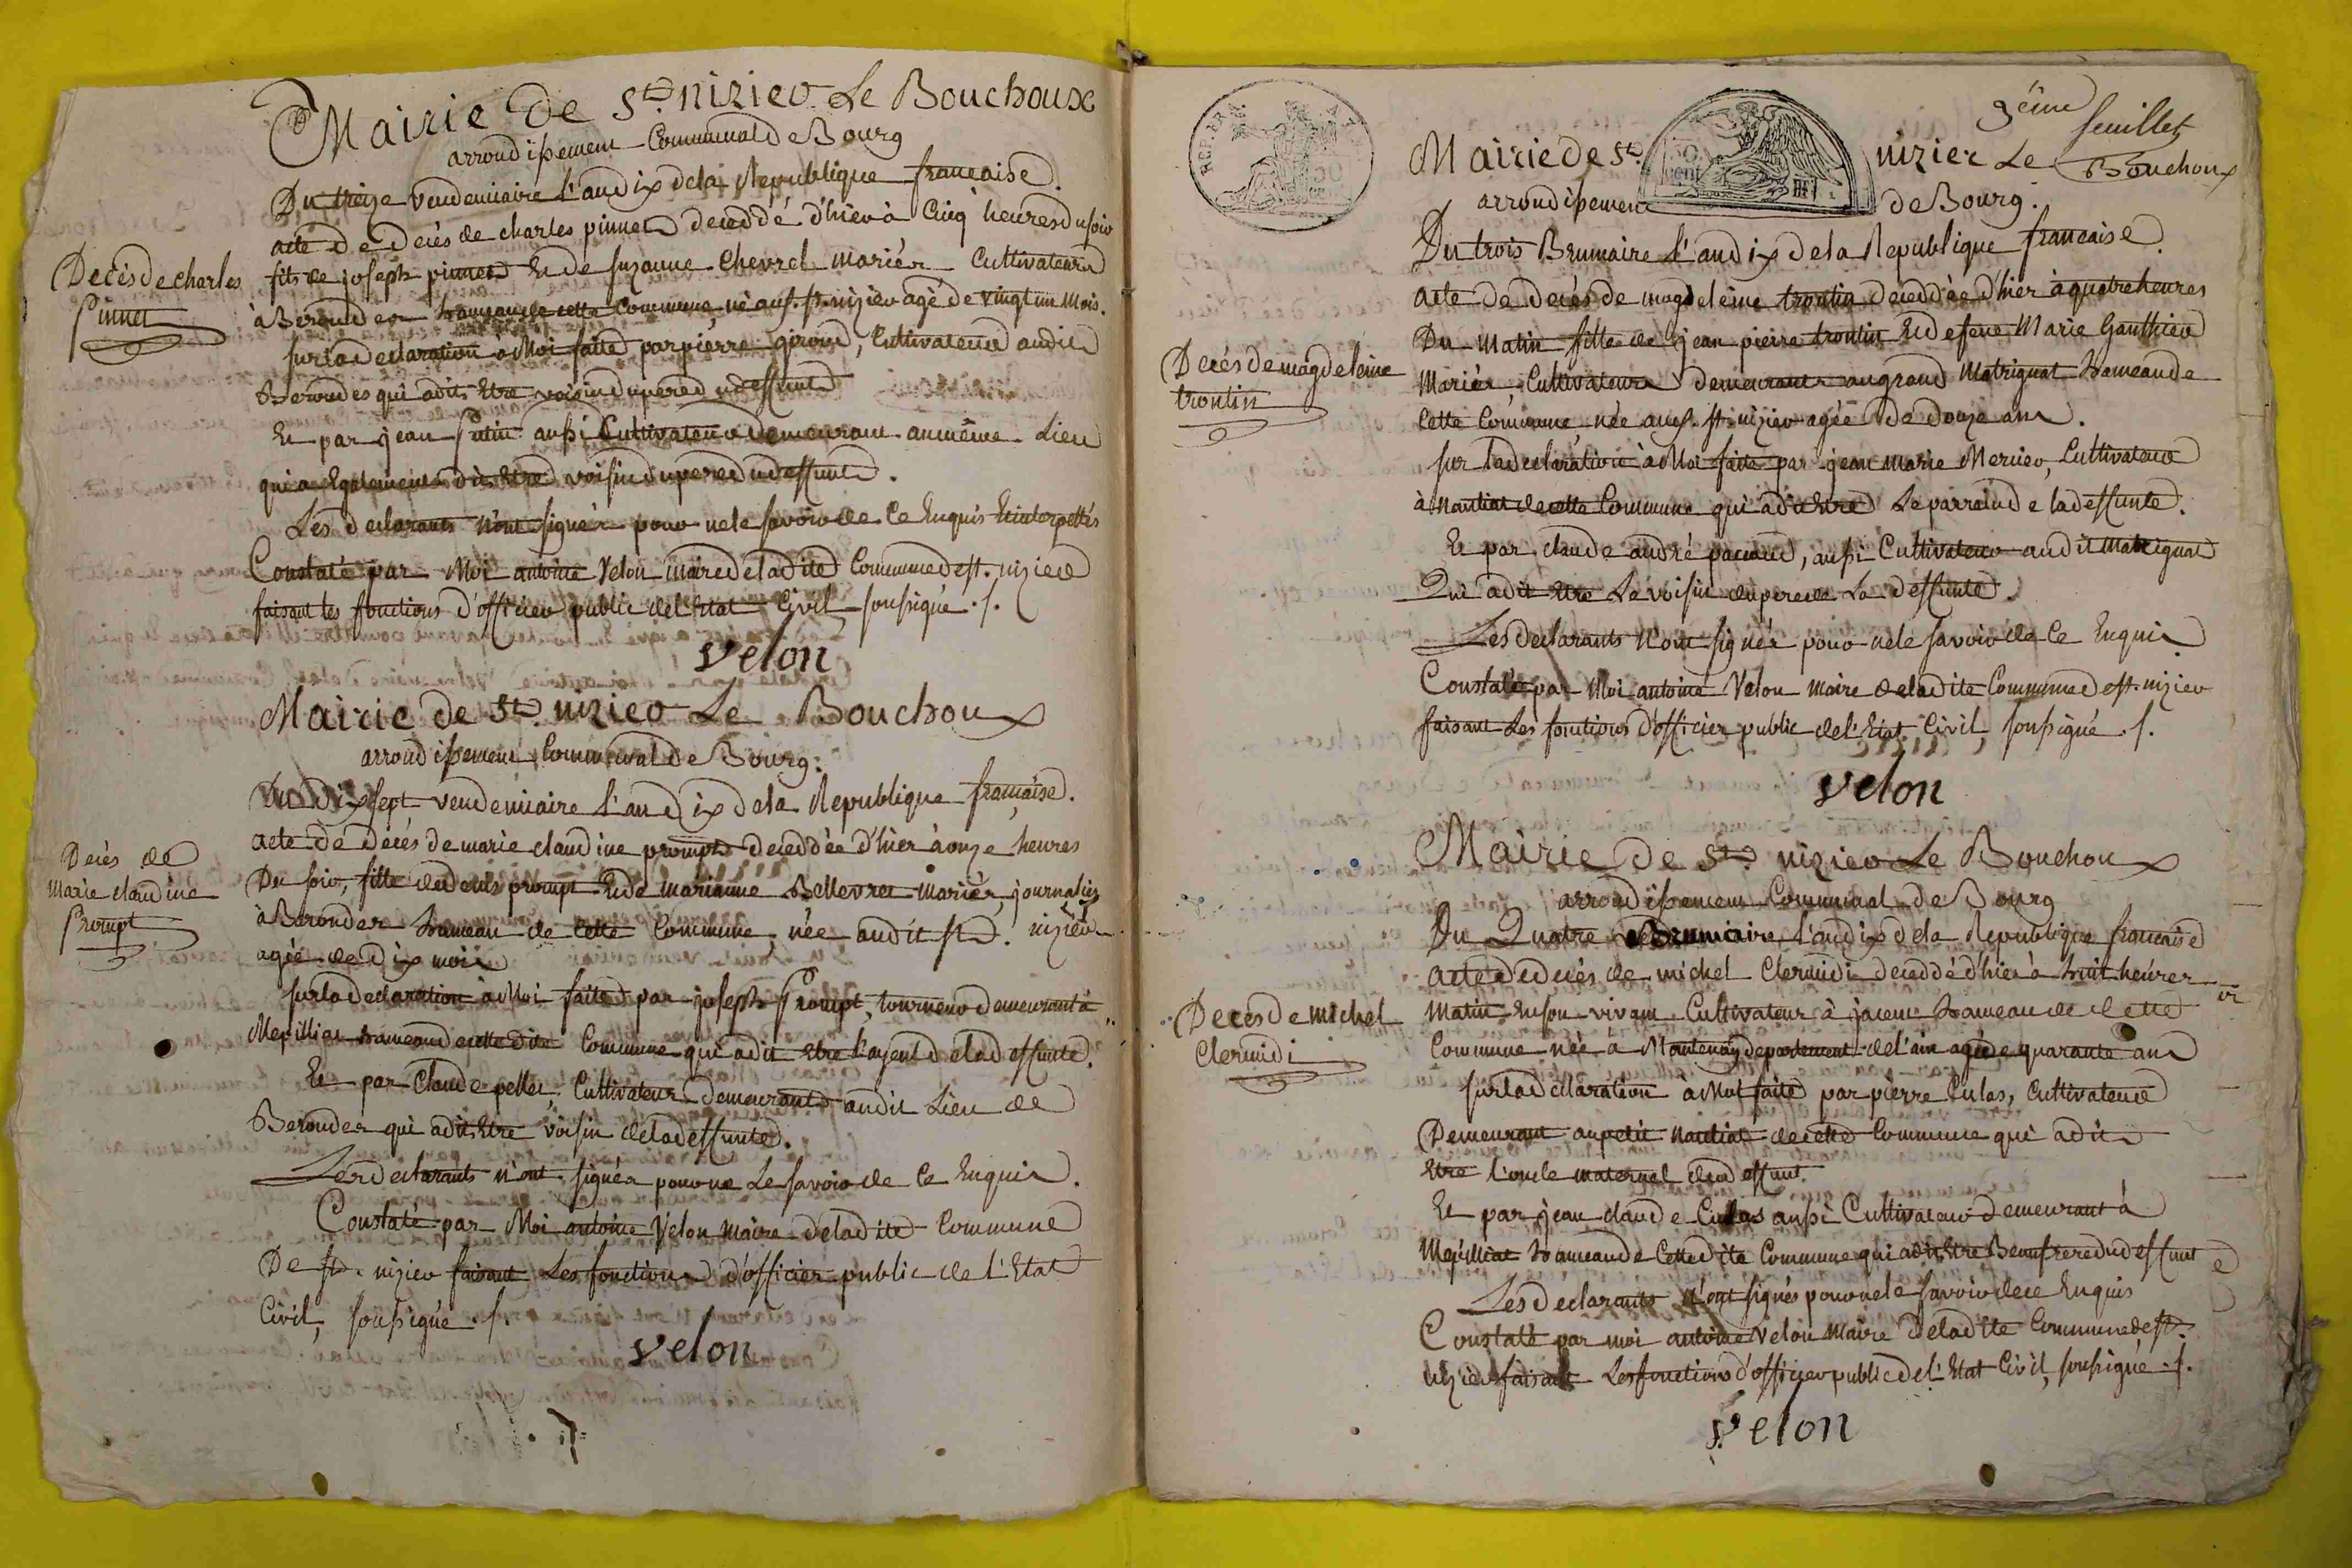 Mairie de St. nizier Le Bouchoux
arrondissement Communal de Bourg
Du treize vendemiaire l'an dix de la Republique francaise.
acte de decès de charles pinnet deceddé d'hier à Cinq heures du soir
Decès de charles
Pinnet
fils de joseph pinnet Et de suzanne Chevrel mariés Cultivateurs
à Berondes hameau de cette Commune, né aud. st. nizier agé de vingt un Mois.
sur la declaration à Moi faite par pierre giroud, Cultivateur audit
Berondes qui a dit Etre voisin du pere du deffunt
Et par jean Putin aussi Cultivateur demeurant au même Lieu
qui a Egalement dit Etre voisin du pere du deffunt.
Les declarants n'ont signés pour ne le savoir de Ce Enquis Et interpellés
Constaté par Moi antoine Velon maire de la dite Commune de st. nizier
faisant les fonctions d'officier public de l'Etat Civil soussigné ./.
velon
Mairie de St. nizier Le Bouchoux
arrondissement Communal de Bourg.
Du Dix sept vendemiaire l'an dix de la Republique francaise.
acte de decés de marie claudine prompt deceddée d'hier à onze heures
Decès de
Marie claudine
Prompt
Du soir, fille de denis prompt Et de marianne Bellevret mariés, journaliers
à Berondes hameau de Cette Commune, née audit st. nizier
agée de dix mois
sur la declaration à Moi faite par joseph Prompt, tourneur demeurant à
Mepilliat hameau de cette dite Commune qui a dit Etre l'ayeul de la deffunte.
Et par Claude pellet, Cultivateur demeurant audit Lieu de
Berondes qui a dit Etre voisin de la deffunte.
Les declarants n'ont signés pour ne Le savoir de Ce Enquis.
Constaté par Moi antoine Velon maire de la dite Commune
De st. nizier faisant Les fonctions d'officier public de l'Etat
Civil, soussigné ./.
velon
3ème
feuillet
Mairie de St. nizier Le Bouchoux
arrondissement de Bourg.
Du trois Brumaire l'an dix de la Republique francaise.
acte de decés de magdeleine trontin deceddée d'hier à quatre heures
Decés de magdeleine
trontin
Du Matin fille de jean pierre trontin Et de feue Marie Gauthier
Mariés, Cultivateurs demeurant au grand Matrignat hameau de
Cette Commune, née aud. st. nizier agée de douze ans.
sur la declaration à Moi faite par jean marie Mercier, Cultivateur
à Mantiat de cette Commune qui a dit Etre Le parrain de la deffunte.
Et par claude andré pacoud, aussi Cultivateur audit Matrignat
Qui a dit Etre Le voisin du pere de La deffunte.
Les declarants n'ont signés pour ne le savoir de Ce Enquis
Constaté par Moi antoine Velon maire de la dite Commune de st. nizier
faisant Les fonctions d'officier public de l'Etat Civil, soussigné ./.
velon
Mairie de St. nizier Le Bouchoux
arrondissement Communal de Bourg
Du Quatre Brumaire, l'an dix de la Republique francaise
acte de decés de michel Clermidi deceddé d'hier à huit heures
Decès de Michel
Clermidi
Matin En son vivant Cultivateur à jacem hameau de Cette
Commune née à Mantenay departement de l'ain agé de quarante ans
sur la declaration à Moi faite par pierre Culas, Cultivateur
Demeurant au petit Mantiat de cette Commune qui a dit
Etre l'oncle maternel du deffunt.
Et par jean claude Culas aussi Cultivateur demeurant à
Mepilliat hameau de Cette dite Commune qui a dit Etre Beaufrere du deffunt
Les declarants n'ont signés pour ne le savoir de ce Enquis
Constaté par moi antoine Velon Maire de la dite Commune de st.
Nizier faisant Les fonctions d'officier public de l'Etat Civil, soussigné ./.
velon